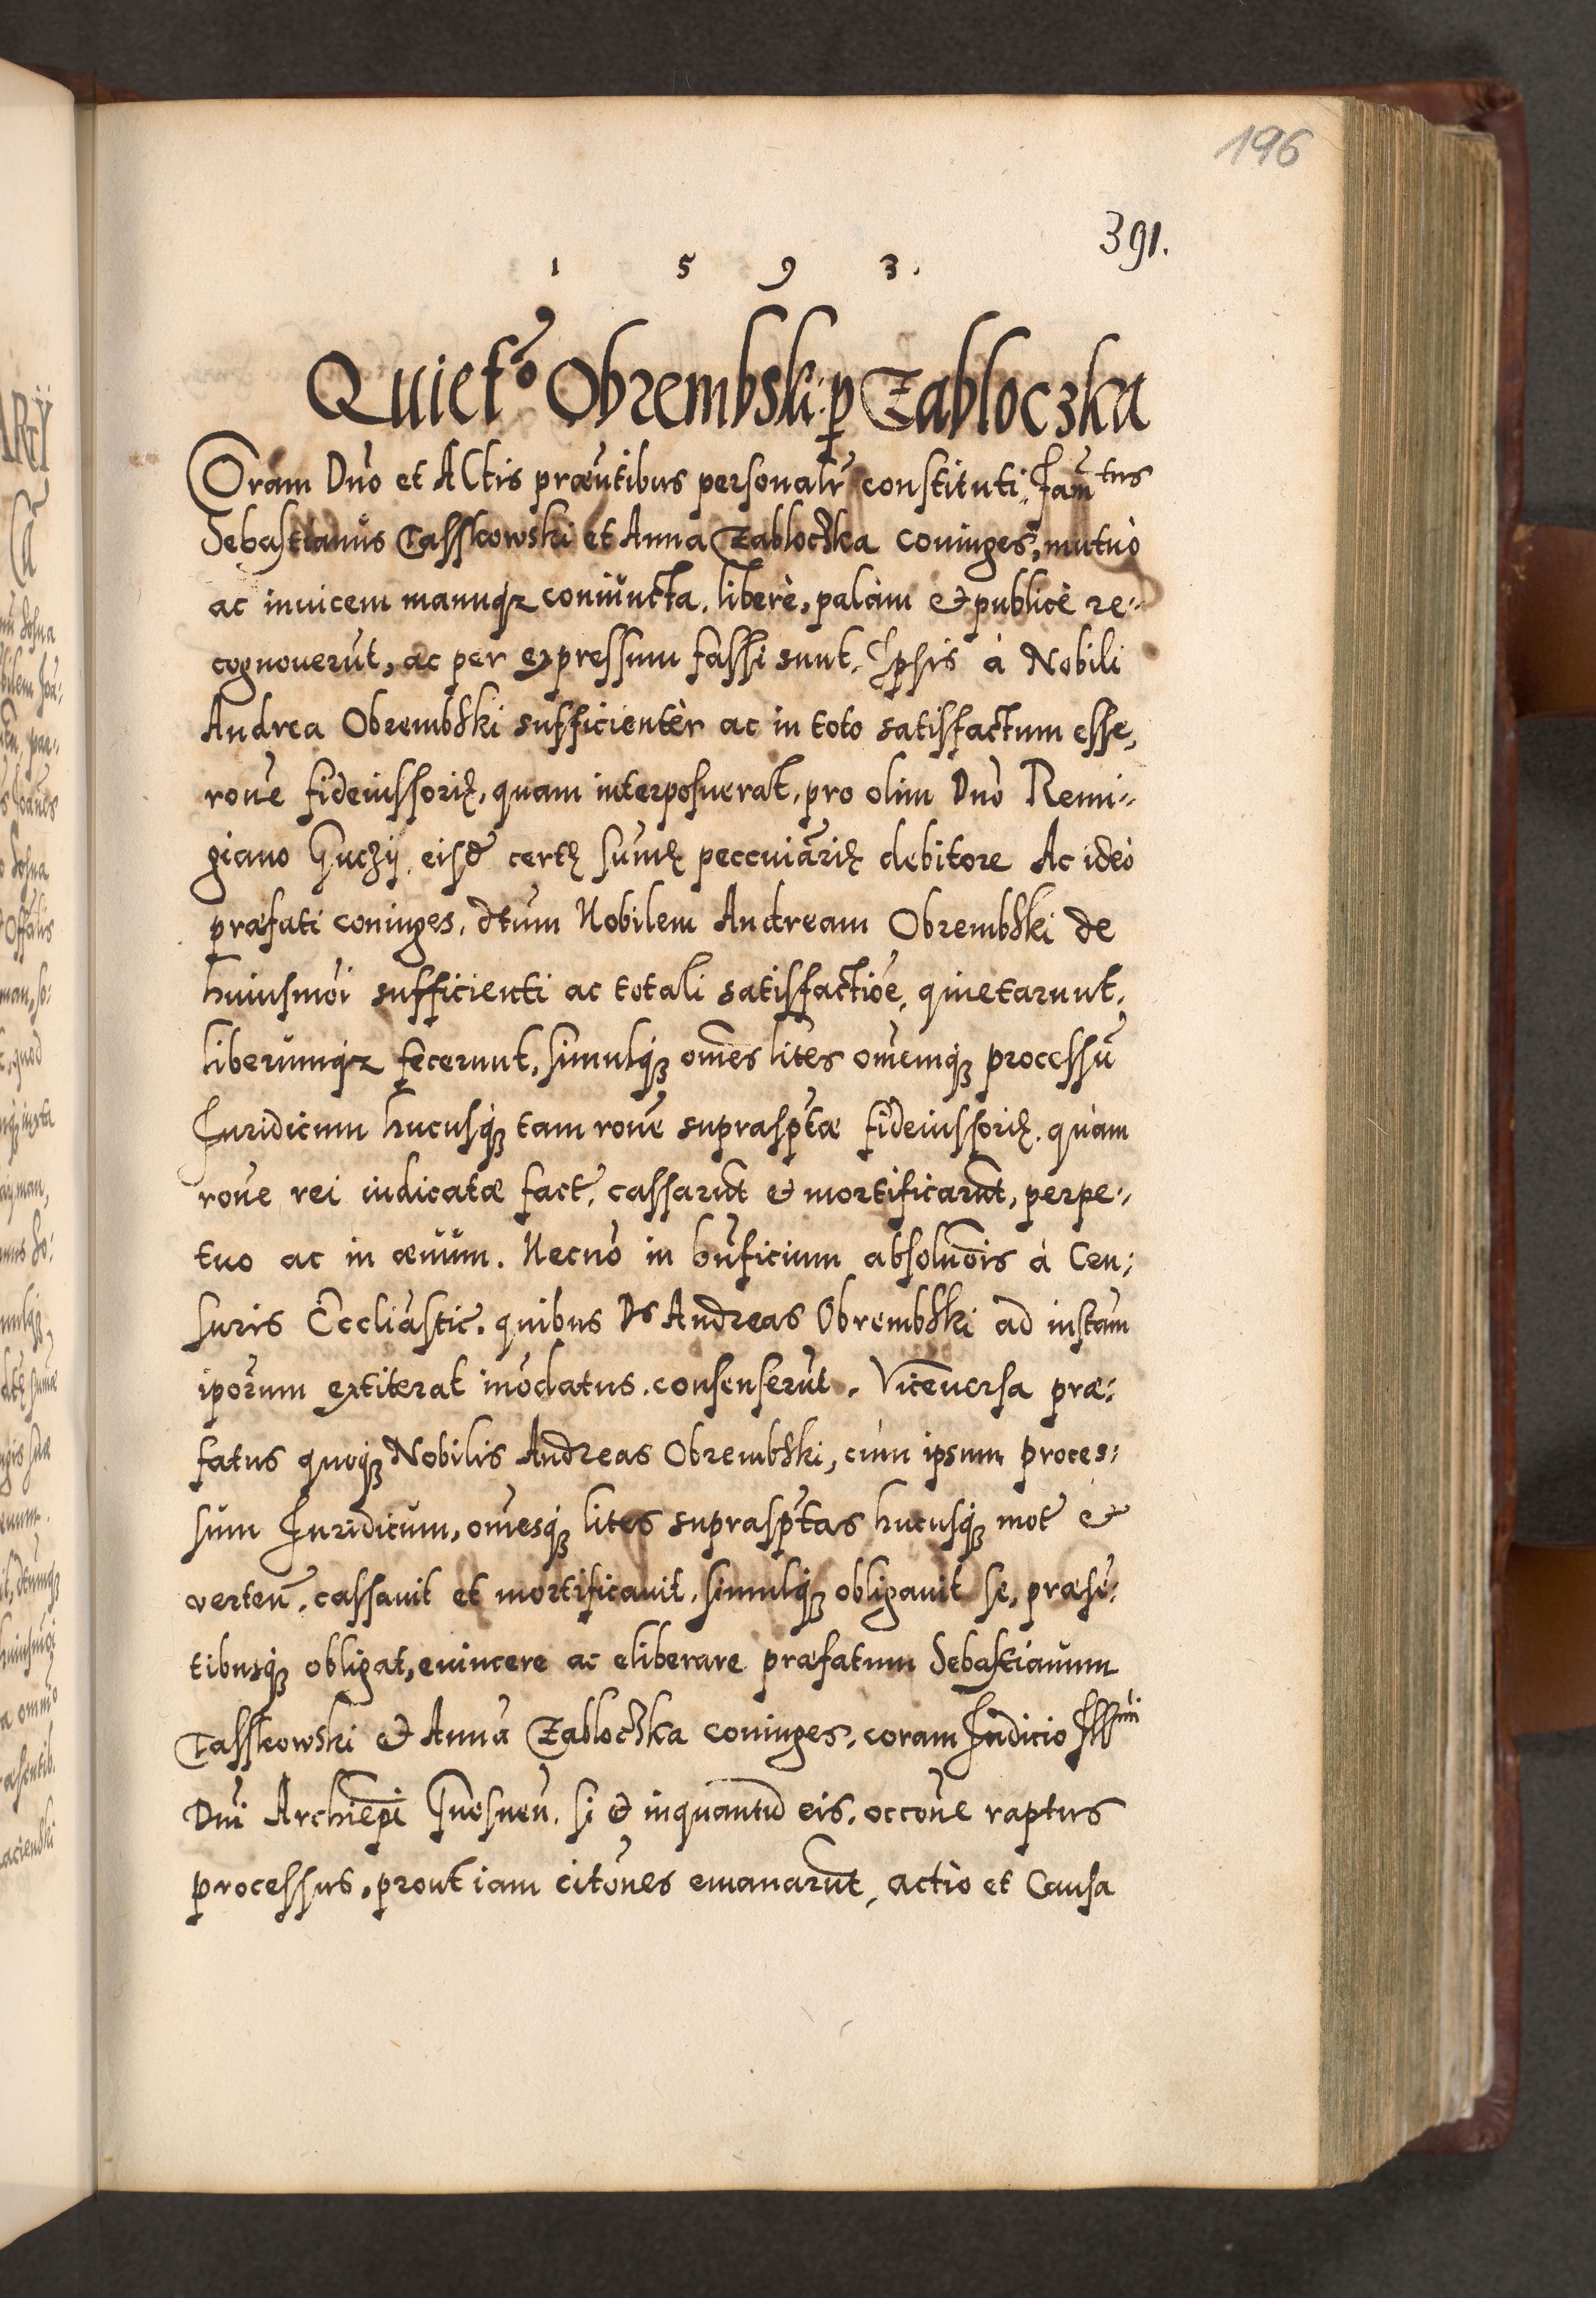 196
391.
1 5 9 3.
Quiet͠o Obrembski p Zabloczka
Coram Dn̄o et Actis præn̄tibus personalr̄ constituti, Fam̄tus
Sebastianus Tasskowski et Anna Zabloczka coniuges, mutuò
ac inuicem manuqz coniūcta, liberè, palàm et publicè re-
cognouerūt, ac per expressum fassi sunt, Ipsis à Nobili
Andrea Obrembski sufficientèr ac in toto satisfactum esse,
rōne fideiussoriæ, quam interposuerat, pro olim Dn̄o Remi-
giano Guczÿ, eisd̄ certæ sum̄æ peccuiariæ debitore Ac ideò
præfati coniuges, dtum Nobilem Andream Obrembski de
huiusmōi sufficienti ac totali satisfactiōe, quietarunt,
liberūmqz fecerunt, simulqz om̄es lites om̄emqz processū
Iuridicum hucusqz tam rōne supraspt̄æ fideiussoriæ, quàm
rōne rei iudicatæ fact̄, cassarūt et mortificarūt, perpe-
tuo ac in æuum. Necnō in bn̄ficium absoluōis à Cen-
suris Eccliāstic̄, quibus Ds Andreas Obrembski ad instam̄
ipōrum extiterat inōdatus, consenserūt. Viceuersa præ-
fatus quoqz Nobilis Andreas Obrembski, cùm ipsum proces-
sum Iuridicum, om̄esqz lites supraspt̄as hucusqz mot̄ et
verten̄, cassauit et mortificauit, simulqz obligauit se, præsē-
tibusqz obligat, euincere ac eliberare præfatum Sebastianum
Tasskowski et Annā Zabloczka coniuges, coram Iudicio Illmi
Dn̄i Archiep̄i Gnesnen̄, si et inquantū eis, occōne raptus
processus, prout iam citōnes emanarūt, actio et Causa